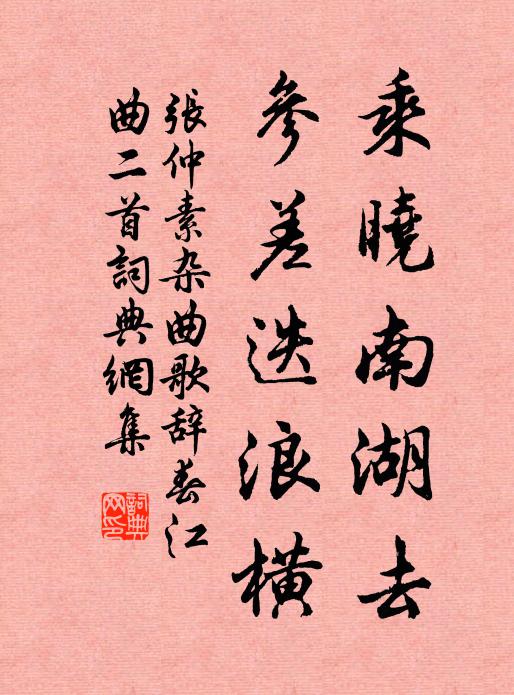 乘曉南湖去
參差迭浪橫
張仲素杂曲歌辞春江
曲二首詞典網集
詞典
网印